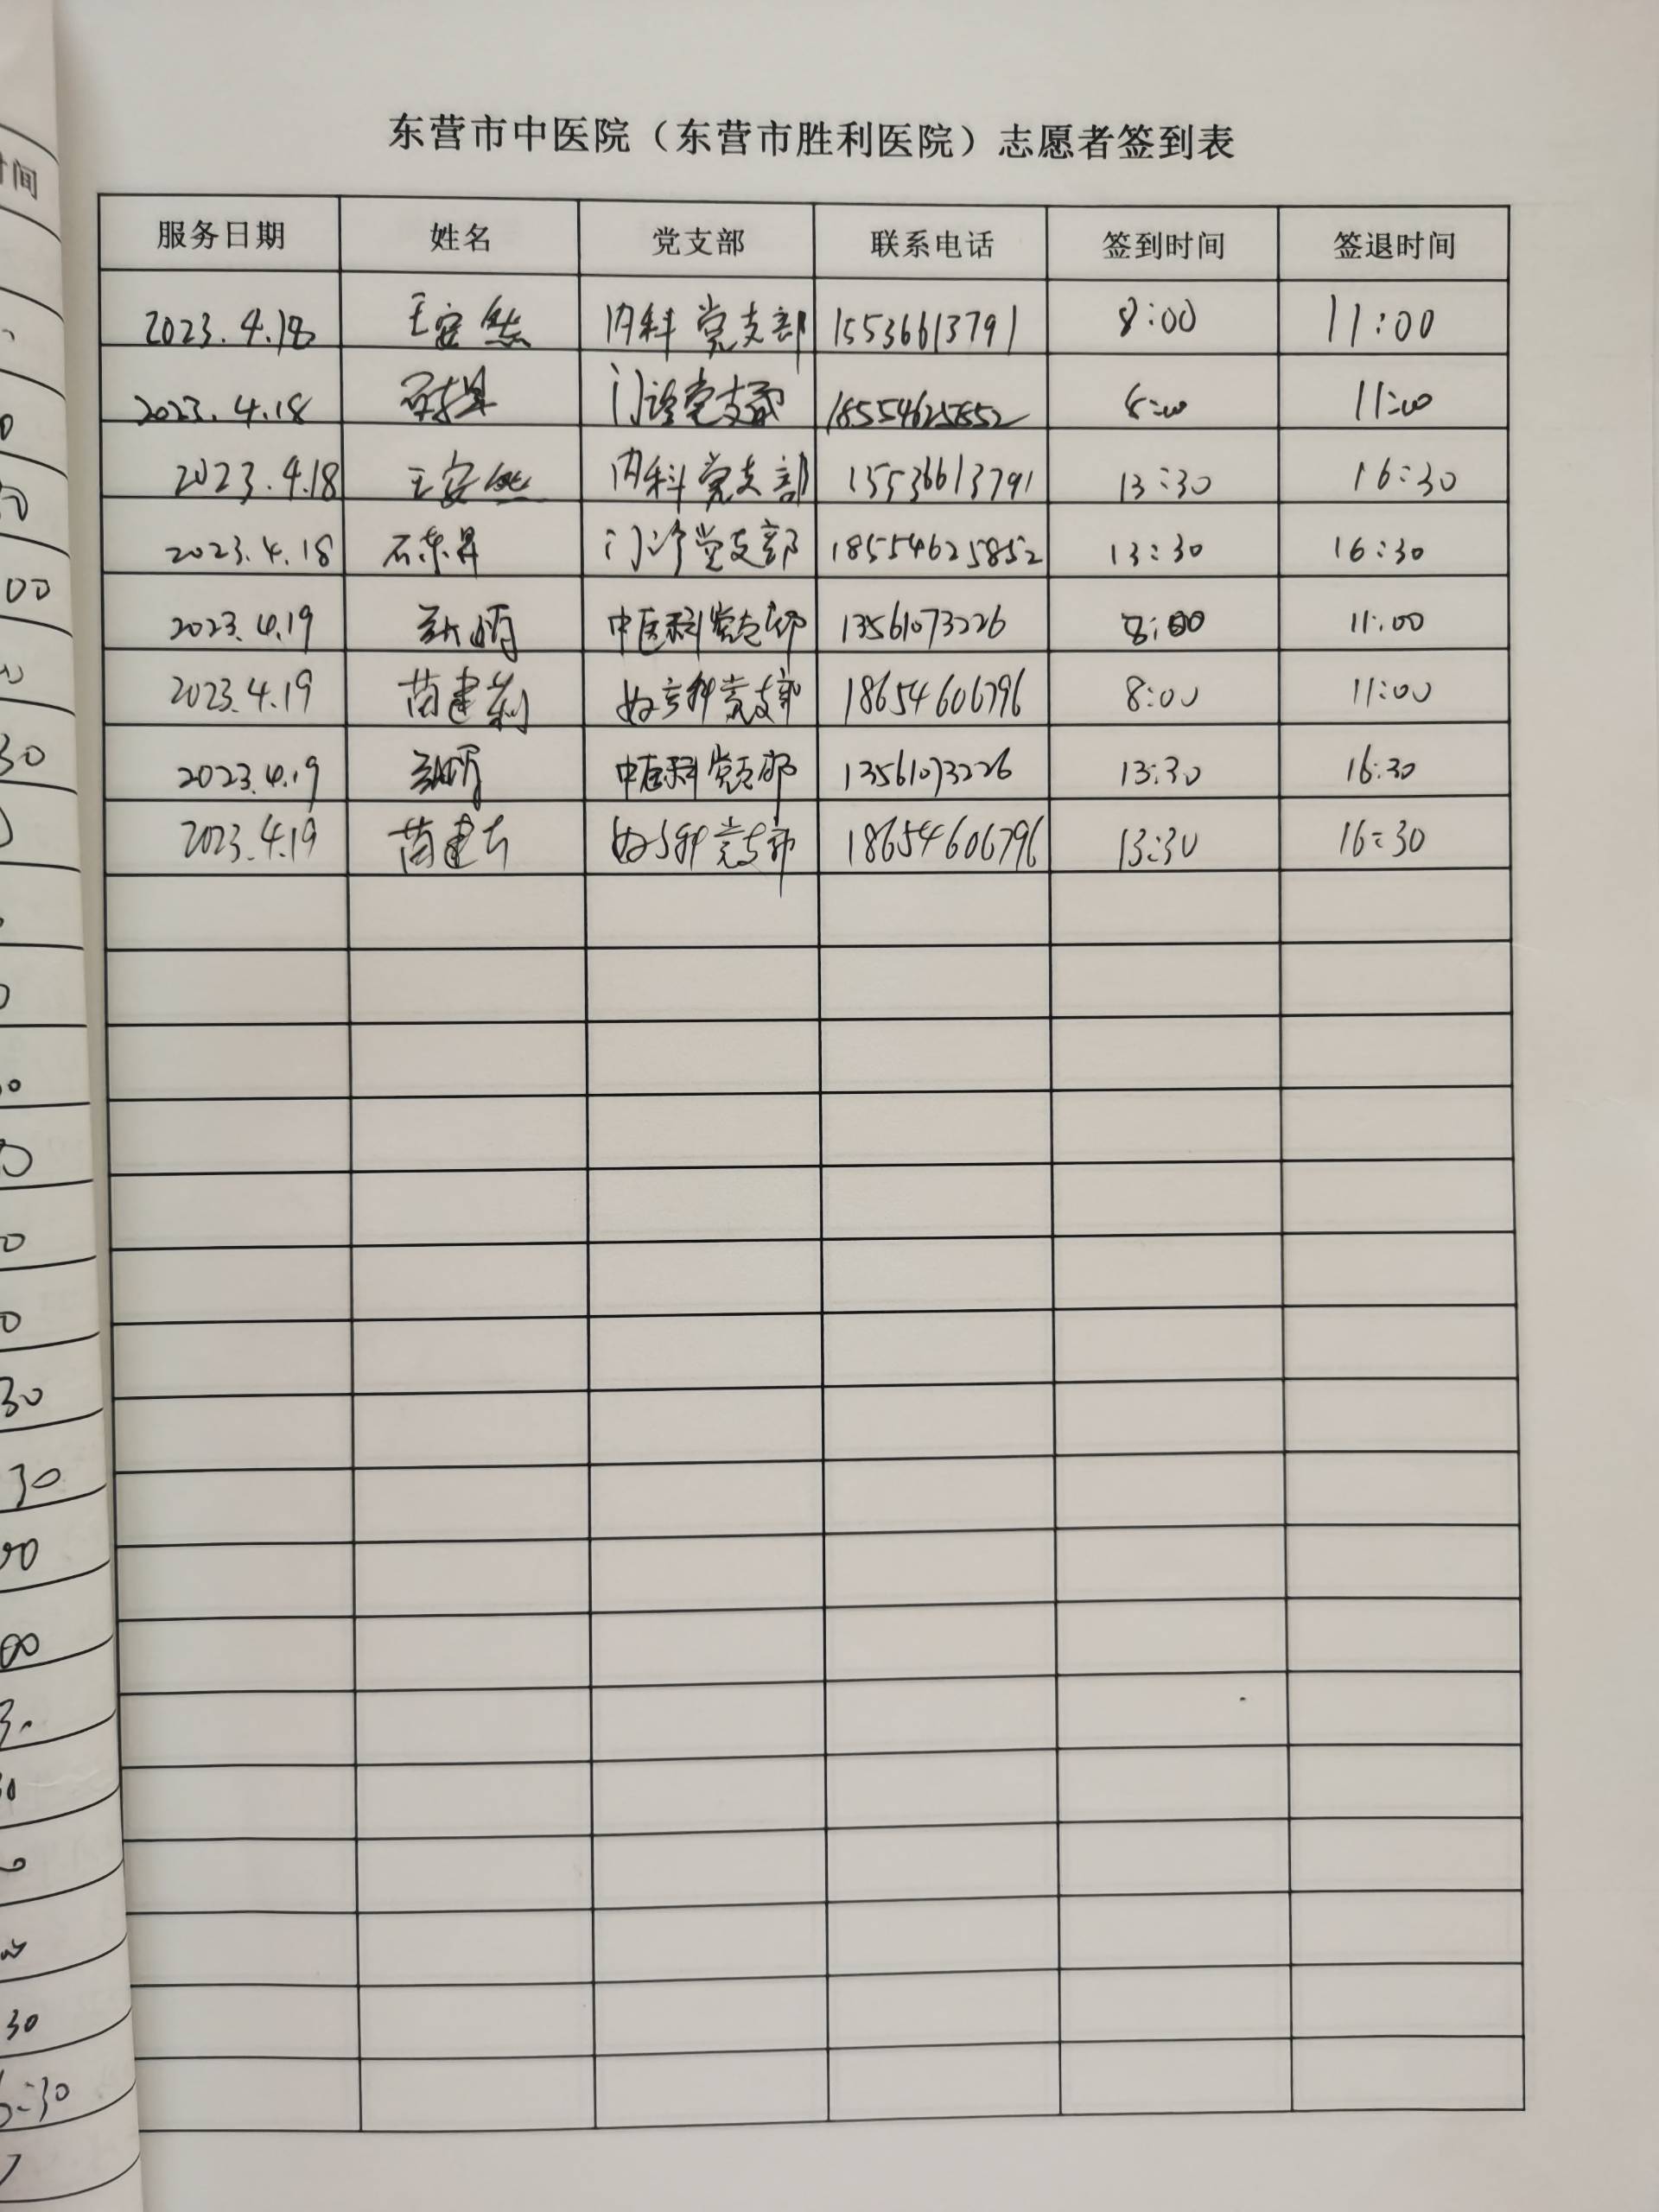 东营市中医院（东营市胜利医院）志愿者签到表
服务日期 姓名 党支部 联系电话 签到时间 签退时间
2023.4.18 王安然 内科党支部 15536613791 8:00 11:00
2023.4.18 门诊党支部 18554625852 8:00 11:00
2023.4.18 王安然 内科党支部 15536613791 13:30 16:30
2023.4.18 石东昇 门诊党支部 18554625852 13:30 16:30
2023.4.19 中医科党支部 13561073226 8:00 11:00
2023.4.19 苗建 妇产科党支部 18654606796 8:00 11:00
2023.4.19 中医科党支部 13561073226 13:30 16:30
2023.4.19 苗建 妇产科党支部 18654606796 13:30 16:30